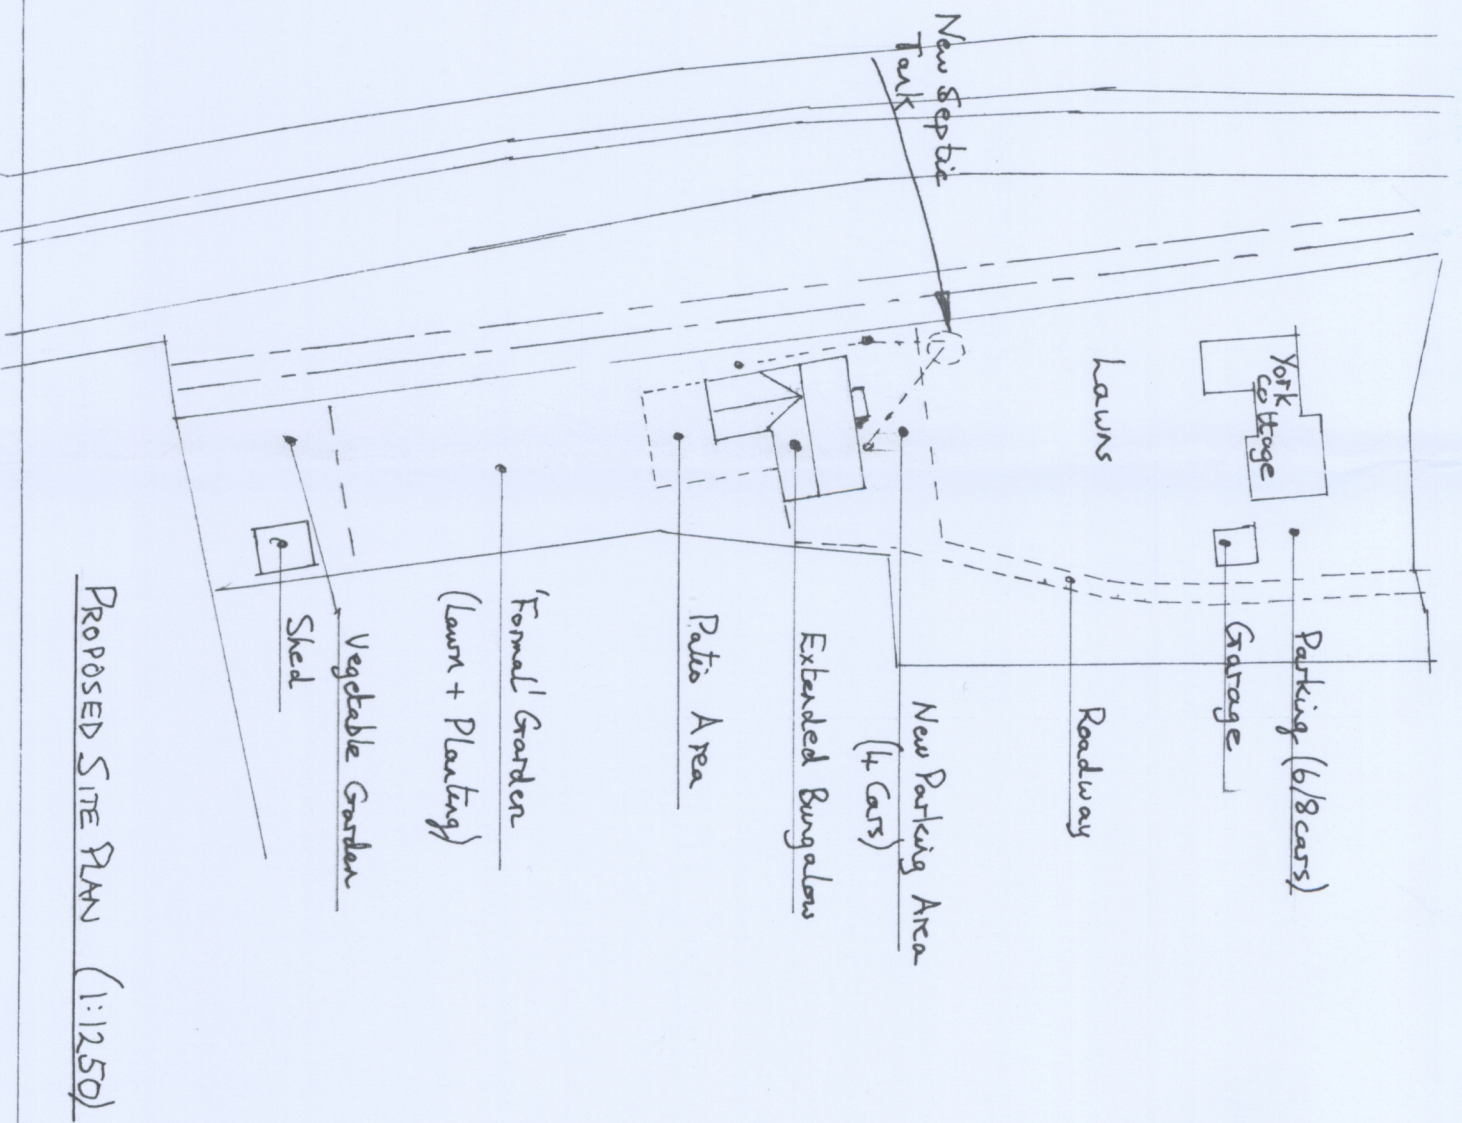 New Septic
Tank
York
Cottage
Lawns
Parking (6/8 cars)
Garage
Roadway
New Parking Area
(4 Cars)
Extended Bungalow
Patio Area
'Formal' Garden
(Lawn + Planting)
Vegetable Garden
Shed
PROPOSED SITE PLAN (1:1250)